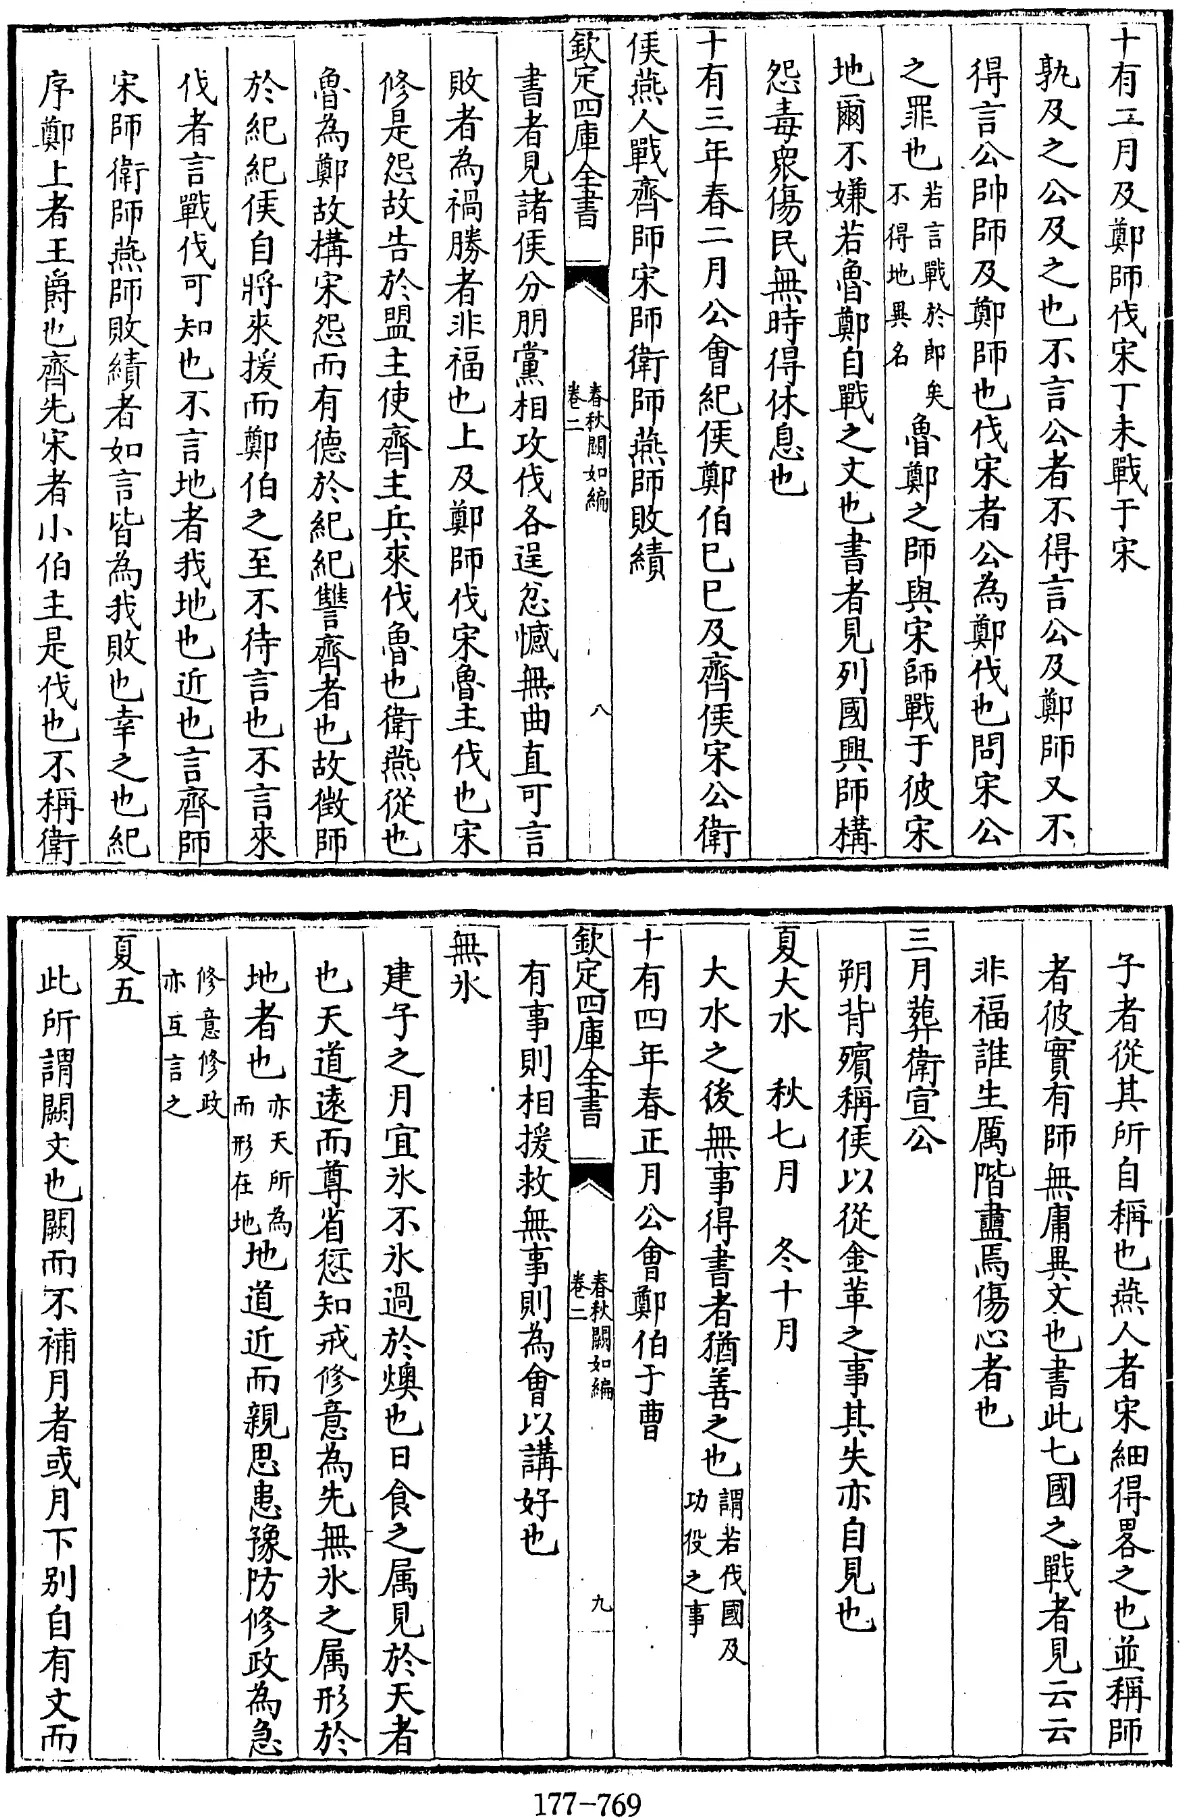 十有二月及鄭師伐宋丁未戰于宋
孰及之公及之也不言公者不得言公及鄭師又不
得言公帥師及鄭師也伐宋者公為鄭伐也問宋公
之罪也若言戰於郎矣不得地異名魯鄭之師與宋師戰于彼宋
地爾不嫌若魯鄭自戰之文也書者見列國興師構
怨毒衆傷民無時得休息也
十有三年春二月公會紀侯鄭伯巳巳及齊侯宋公衛
侯燕人戰齊師宋師衛師燕師敗績
欽定四庫全書
春秋闕如編
卷二
八
書者見諸侯分朋黨相攻伐各逞忿憾無曲直可言
敗者為禍勝者非福也上及鄭師伐宋魯主伐也宋
修是怨故告於盟主使齊主兵來伐魯也衛燕從也
魯為鄭故構宋怨而有德於紀紀讐齊者也故徵師
於紀紀侯自將來援而鄭伯之至不待言也不言來
伐者言戰伐可知也不言地者我地也近也言齊師
宋師衛師燕師敗績者如言皆為我敗也幸之也紀
序鄭上者王爵也齊先宋者小伯主是伐也不稱衛
子者從其所自稱也燕人者宋細得畧之也並稱師
者彼實有師無庸異文也書此七國之戰者見云云
非福誰生厲階盡焉傷心者也
三月葬衛宣公
朔背殯稱侯以從金革之事其失亦自見也
夏大水 秋七月 冬十月
大水之後無事得書者猶善之也謂若伐國及功役之事
十有四年春正月公會鄭伯于曹
欽定四庫全書
春秋闕如編
卷二
九
有事則相援救無事則為會以講好也
無氷
建子之月宜氷不氷過於燠也日食之属見於天者
也天道遠而尊省愆知戒修意為先無氷之属形於
地者也亦天所為而形在地地道近而親思患豫防修政為急
修意修政亦互言之
夏五
此所謂闕文也闕而不補月者或月下別自有文而
177-769